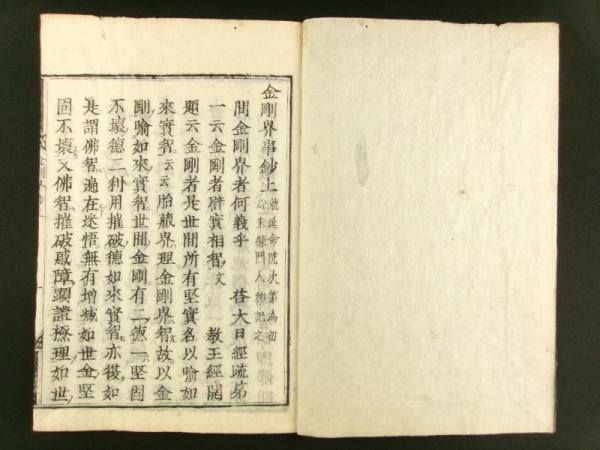 金剛界事鈔上 就延命院次第為初心末練門人抄記之
問金剛界者何義乎 荅大日經疏第
一云金剛者辟實相智文 教王經開
題云金剛者是世間所有堅實名以喻如
來實智云云胎藏界理金剛界智故以金
剛喻如來實智世間金剛有二德一堅固
不壞德二利用摧破德如來實智亦復如
是謂佛智遍在迷悟無有增減如世金堅
固不壞又佛智摧破惑障顯證極理如世